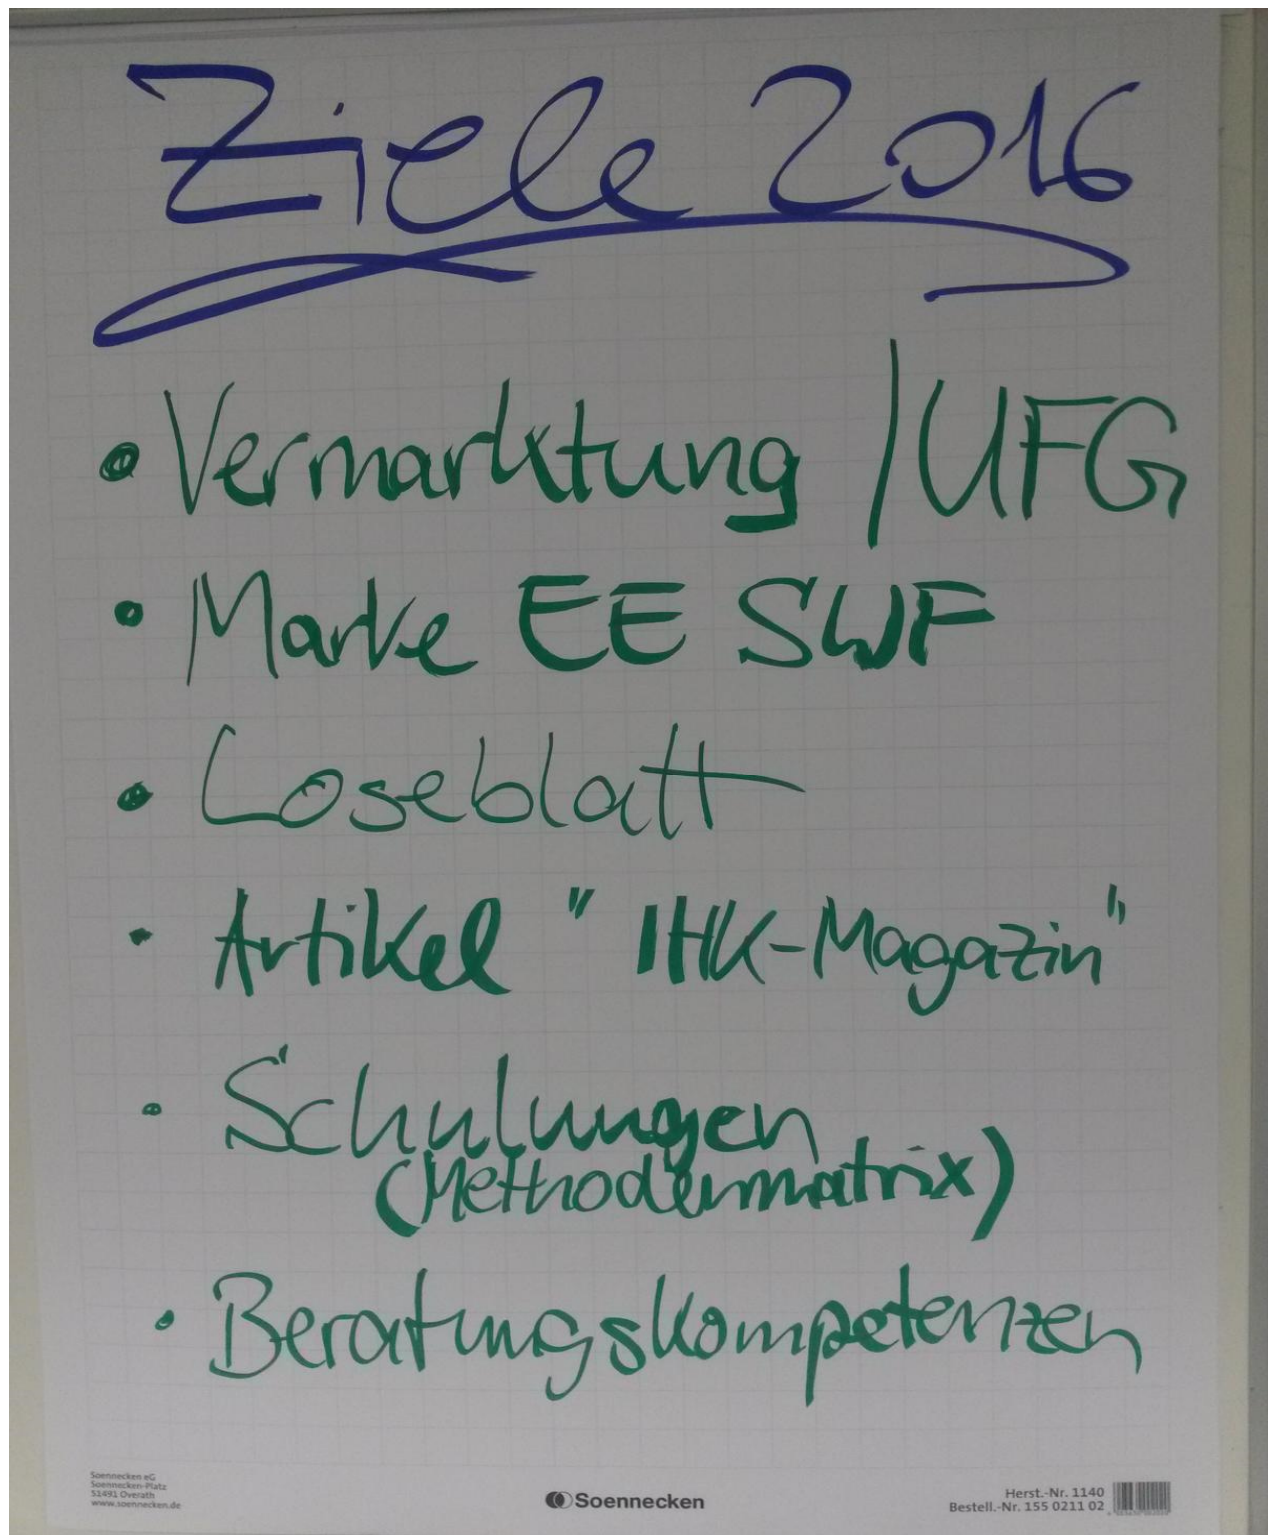 Ziele 2016
• Vermarktung / UFG
• Marke EE SWF
• Loseblatt
• Artikel " IHK-Magazin"
• Schulungen
(Methodenmatrix)
• Beratungskompetenzen
Soennecken eG
Soennecken-Platz
51491 Overath
www.soennecken.de
Soennecken
Herst.-Nr. 1140
Bestell.-Nr. 155 0211 02